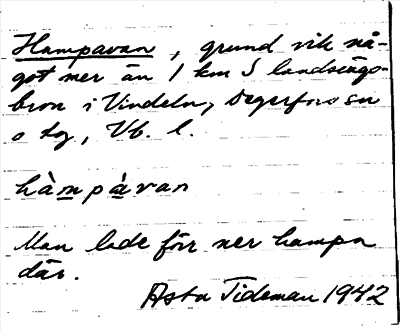 Hampavan, grund vik nå-
got mer än 1 km S landsvägs-
bron i Vindeln, Degerfors sn
o tg, Vb. l.
hàmpàvan
Man lade förr ner hampa
där.
Asta Tideman 1942